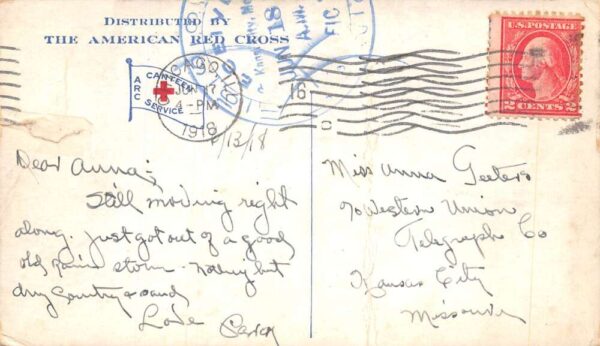 DISTRIBUTED BY
THE AMERICAN RED CROSS
A R C
CANTEEN
SERVICE
JUN 17
4-PM
1918
6/13/18
U.S. POSTAGE
2 CENTS 2
Dear Anna;
Still moving right
along. Just got out of a good
old rain storm. Nothing but
dry Country & sand
Love
Miss Anna Geeters
c/o Western Union
Telegraph Co
Kansas City
Missouri